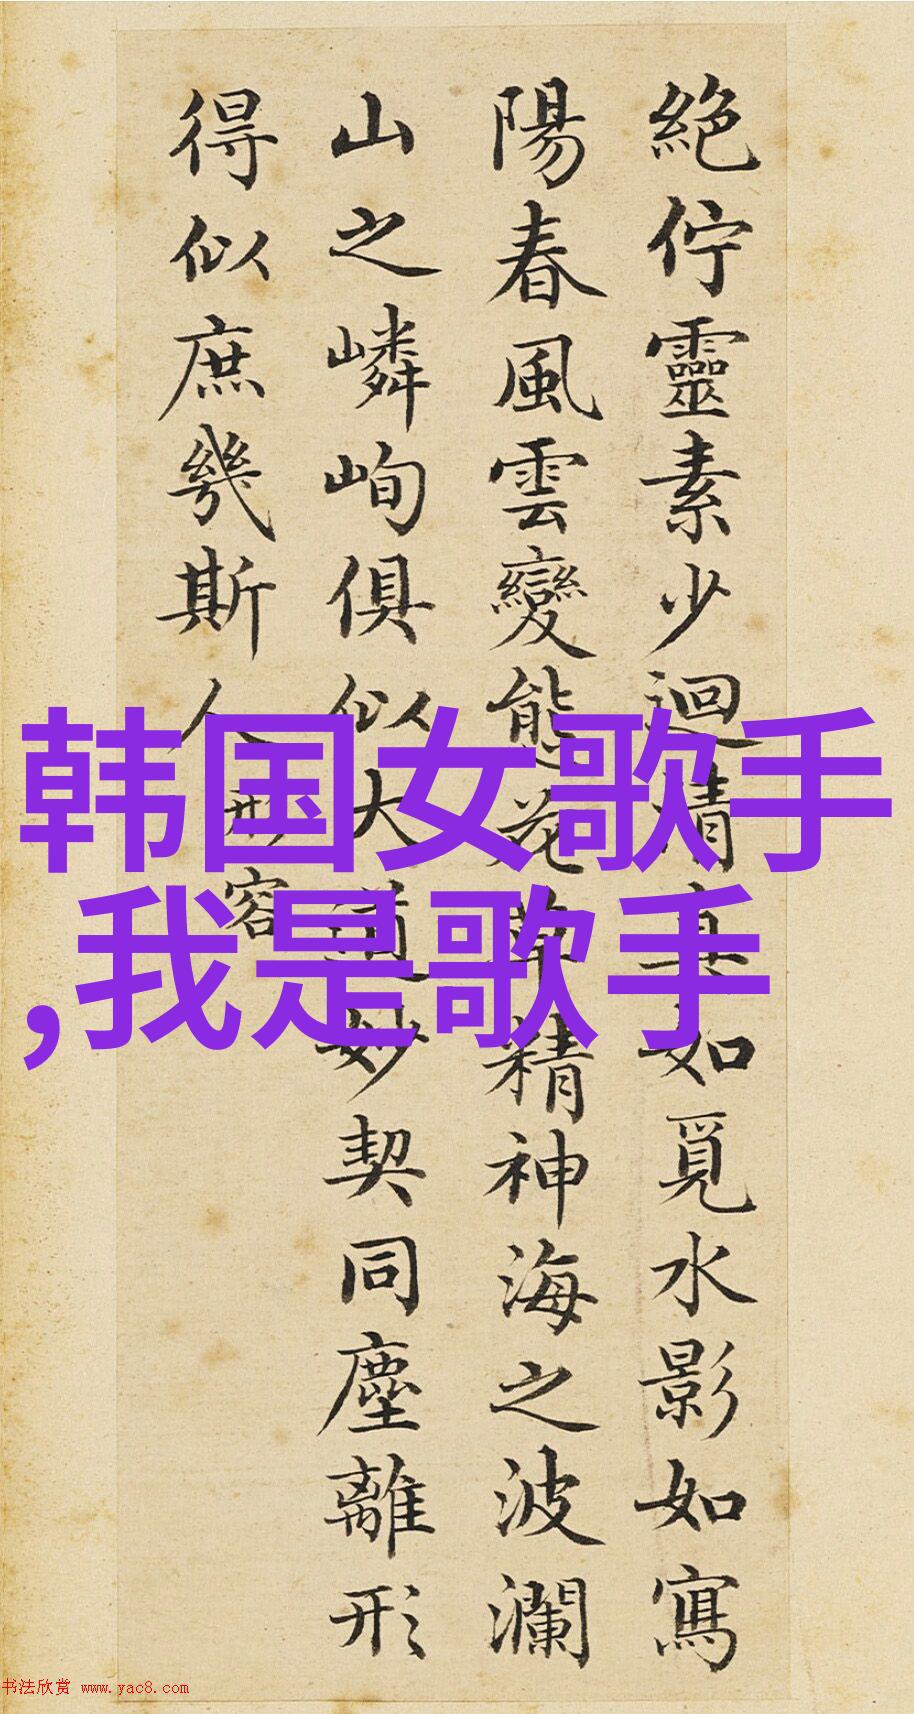 絶佇靈素少迴清真如覓水影如寫
陽春風雲變態花草精神海之波瀾
山之嶙峋俱似大道妙契同塵離形
得似庶幾斯人
形容
韩国女歌手
,我是歌手
书法欣赏 www.yac8.com